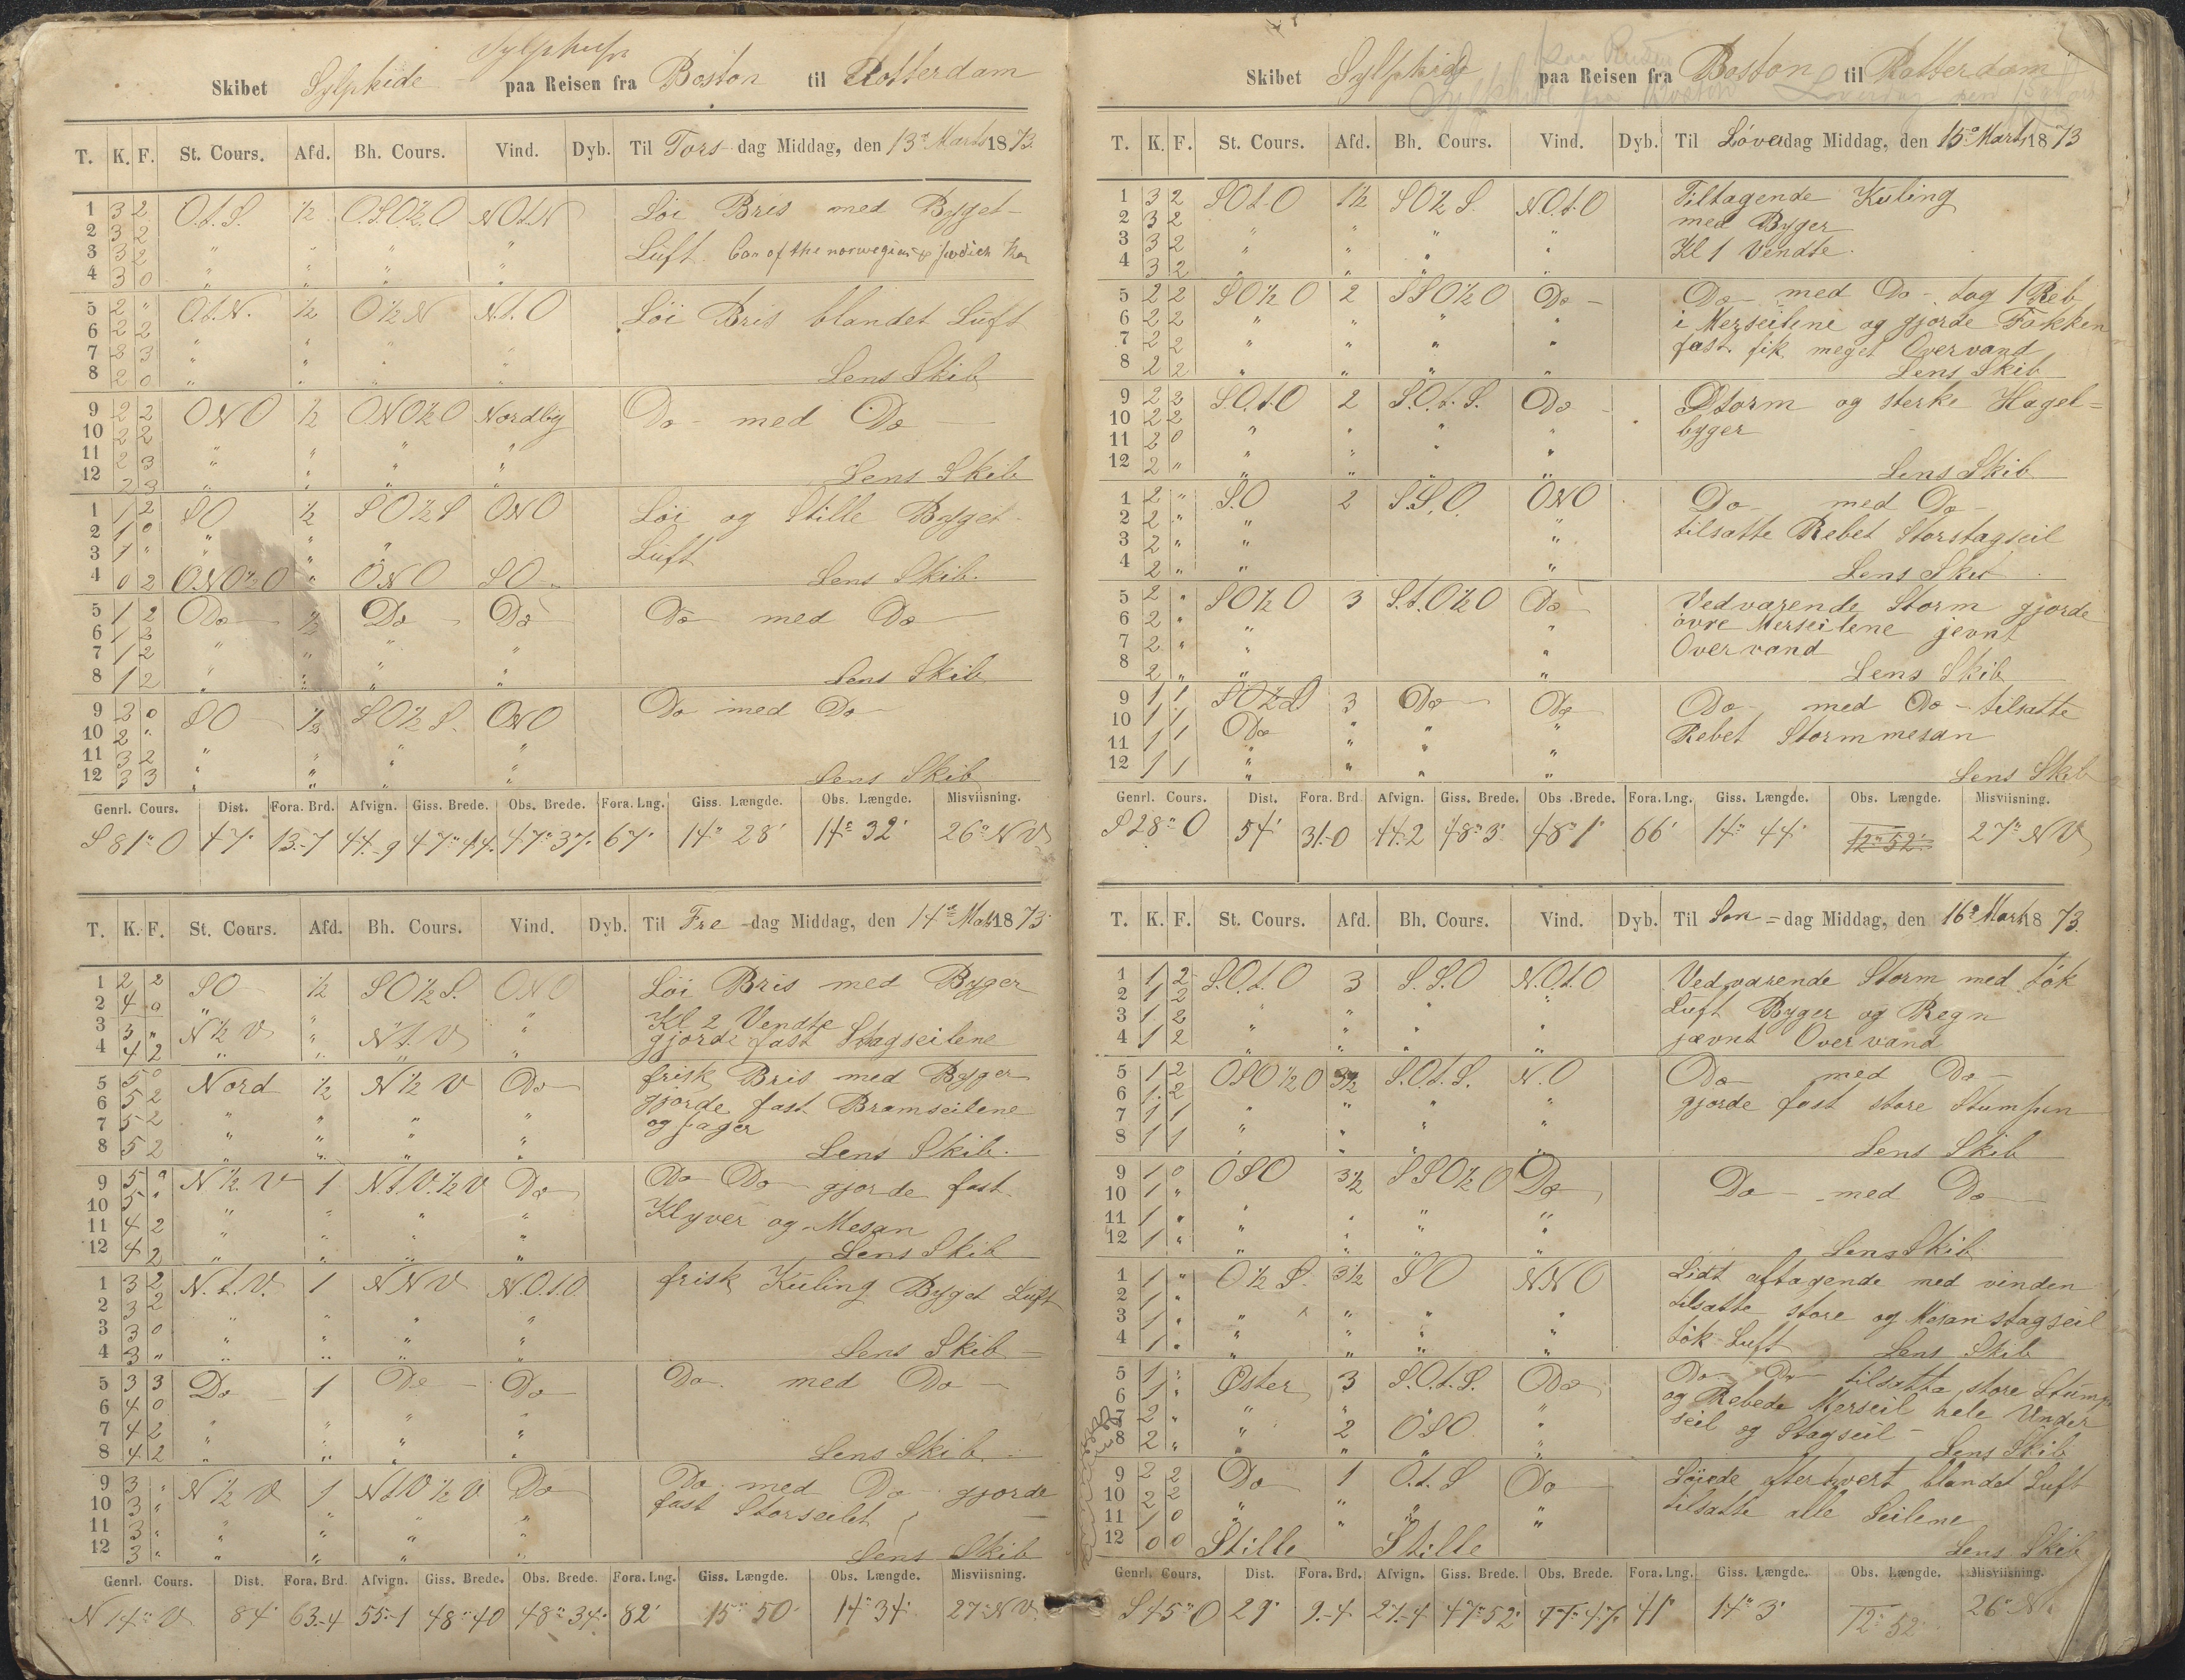 Sylphide
Skibet Sylphide paa Reisen fra Boston til Rotterdam
T. K. F. St. Cours. Afd. Bh. Cours. Vind. Dyb. Til Tors-dag Middag, den 13de Marts 1873.
1 3 2 O.t.S. ½ O.S.O½O NOt.N Löi Bris med Byget-
2 3 2
3 3 2 " " " " Luft. Can of the norwegian
4 3 0 " " " "
5 2 " O.t.N. ½ O½N N.t.O Löi Bris blandet Luft
6 2 2
7 2 3 " " " "
8 2 0 " " " " Lens Skib
9 2 2 ONO ½ ONO½O Nordlig Do - med Do -
10 2 2
11 2 3 " " " "
12 2 3 " " " " Lens Skib
1 1 2 SO ½ SO½S ONO Löi og Stille Byget
2 1 0 " "
3 1 " " " " Luft
4 0 2 ONO½O " ONO SO Lens Skib.
5 1 2 Do ½ Do Do Do med Do
6 1 3
7 1 2 " " " "
8 1 2 " " " " Lens Skib
9 3 0 SO ½ SO½S. ONO Do med Do
10 2 "
11 3 2 " " " "
12 3 3 " " " " Lens Skib
Genrl. Cours. Dist. Fora. Brd. Afvign. Giss. Brede. Obs. Brede. Fora. Lng. Giss. Længde. Obs. Længde. Misviisning.
S 81° O 47' 13-7 44-9 47°44' 47°37' 67' 14° 28' 14° 32' 26° NV
T. K. F. St. Cours. Afd. Bh. Cours. Vind. Dyb. Til Fre-dag Middag, den 14de Mars 1873
1 2 2 SO ½ SO½S. ONO Löi Bris med Byger
2 4 0 " Kl 2 Vendte
3 3 " N½V " N.t.V " gjorde fast Stagseilene
4 4 2 " " " "
5 5 0 Nord ½ N½V Do frisk Bris med Byger
6 5 2 gjorde fast Bramseilene
7 5 2 " " " " og Jager
8 5 2 " " " " Lens Skib.
9 5 " N½V 1 N.t.V.½V Do Do Do gjorde fast
10 5 " " " " "
11 4 2 " " " " Klyver og Mesan
12 4 2 " " " " Lens Skib
1 3 2 N.t.V. 1 NNV N.O.t.O frisk Kuling Byget Luft
2 3 2
3 3 0 " " " "
4 3 " " " " " Lens Skib
5 3 3 Do 1 Do Do Do. med Do
6 4 0
7 4 2 " " " "
8 4 2 " " " " Lens Skib
9 3 " N½V 1 N.t.V½V Do Do. med Do gjorde
10 3 " fast Storseilet
11 3 " " " " "
12 3 " " " " " Lens Skib
Genrl. Cours. Dist. Fora. Brd. Afvign. Giss. Brede. Obs. Brede. Fora. Lng. Giss. Længde. Obs. Længde. Misviisning.
N 14° V 84' 63-4 55-1 48°40 48°34' 82' 15° 50' 14° 34' 27° NV
Skibet Sylphide paa Reisen fra Boston til Rotterdam
T. K. F. St. Cours. Afd. Bh. Cours. Vind. Dyb. Til Löverdag Middag, den 15de Marts 1873
1 3 2 SOt.O 1½ SO½S. N.O.t.O Tiltagende Kuling
2 3 2 med Byger
3 3 2 " " " " Kl 1 Vendte.
4 3 2 " " " "
5 2 2 SO½O 2 SSO½O Do Do med Do - tog 1 Reb
6 2 2 " " " i Merseilene og gjorde Fokken
7 2 2 " " " " fast. fik meget Overvand
8 2 2 " " " " Lens Skib
9 2 3 S.O.t.O 2 S.O.t.S. Do Storm og sterke Hagel=
10 2 2 byger
11 2 0 " " " "
12 2 " " " " " Lens Skib
1 2 " S.O 2 S.S.O. ONO Do med Do
2 2 " " " tilsatte Rebet Storstagseil
3 2 " " "
4 2 " " " Lens Skib
5 2 " SO½O 3 S.t.O½O Do Vedvarende Storm gjorde
6 2 " " " övre Merseilene jevnt
7 2 " " " Overvand
8 2 " " " Lens Skib
9 1 1 3 Do Do Do med Do - tilsatte
10 1 1 Do " " " Rebet Stormmesan
11 1 1 " " " "
12 1 1 " " " " Lens Skib
Genrl. Cours. Dist. Fora. Brd. Afvign. Giss. Brede. Obs. Brede. Fora. Lng. Giss. Længde. Obs. Længde. Misviisning.
S 28° O 54' 31-0 44-2 48° 3' 48° 1' 66' 14° 44' 12° 52' 27° NV
T. K. F. St. Cours. Afd. Bh. Cours. Vind. Dyb. Til Søn=dag Middag, den 16de Marts 1873.
1 1 2 S.O.t.O 3 S.S.O N.O.t.O Vedvarende Storm med tök
2 1 2 " " Luft Byger og Regn
3 1 2 " " " " jævnt Overvand
4 1 2 " " " "
5 1 2 OSO½O 3½ S.O.t.S. N.O Do med Do
6 1 2 gjorde fast store Stumpen
7 1 1 " " " "
8 1 1 " " " " Lens Skib
9 1 0 OSO 3½ SSO½O Do Do - med Do
10 1 "
11 1 " " " " "
12 1 " " " " " Lens Skib
1 1 " O½S. 3½ SO NNO Lidt aftagende med vinden
2 1 " tilsatte store og Mesan stagseil
3 1 " " " " " tök Luft
4 1 " " " " " Lens Skib
5 1 " Øster 3 S.O.t.S. Do Do Do tilsatte store Stump
6 1 " og Rebede Merseil hele Under
7 2 " " 2 OSO " seil og Stagseil -
8 2 " " " " " Lens Skib
9 2 2 Do 1 O.t.S Do Löiede efterhvert blandet Luft
10 2 2 tilsatte alle Seilene
11 1 0 " " " "
12 0 0 Stille Stille Lens Skib
Genrl. Cours. Dist. Fora. Brd. Afvign. Giss. Brede. Obs. Brede. Fora. Lng. Giss. Længde. Obs. Længde. Misviisning.
S 45° O 29' 9-4 27-4 47°52' 47° 47' 41' 14° 3' 12° 52' 26° N.